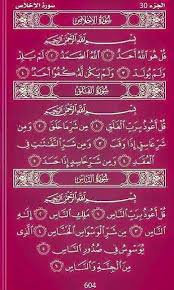 سورة الإخلاص الجزء 30
سُورَةُ الإِخْلَاصِ
بِسْمِ اللَّهِ الرَّحْمَٰنِ الرَّحِيمِ
قُلْ هُوَ اللَّهُ أَحَدٌ ١ اللَّهُ الصَّمَدُ ٢ لَمْ يَلِدْ
وَلَمْ يُولَدْ ٣ وَلَمْ يَكُن لَّهُ كُفُوًا أَحَدٌ ٤
سُورَةُ الفَلَقِ
بِسْمِ اللَّهِ الرَّحْمَٰنِ الرَّحِيمِ
قُلْ أَعُوذُ بِرَبِّ الْفَلَقِ ١ مِن شَرِّ مَا خَلَقَ ٢ وَمِن
شَرِّ غَاسِقٍ إِذَا وَقَبَ ٣ وَمِن شَرِّ النَّفَّاثَاتِ فِي
الْعُقَدِ ٤ وَمِن شَرِّ حَاسِدٍ إِذَا حَسَدَ ٥
سُورَةُ النَّاسِ
بِسْمِ اللَّهِ الرَّحْمَٰنِ الرَّحِيمِ
قُلْ أَعُوذُ بِرَبِّ النَّاسِ ١ مَلِكِ النَّاسِ ٢
إِلَٰهِ النَّاسِ ٣ مِن شَرِّ الْوَسْوَاسِ الْخَنَّاسِ ٤ الَّذِي
يُوَسْوِسُ فِي صُدُورِ النَّاسِ ٥
مِنَ الْجِنَّةِ وَالنَّاسِ ٦
604